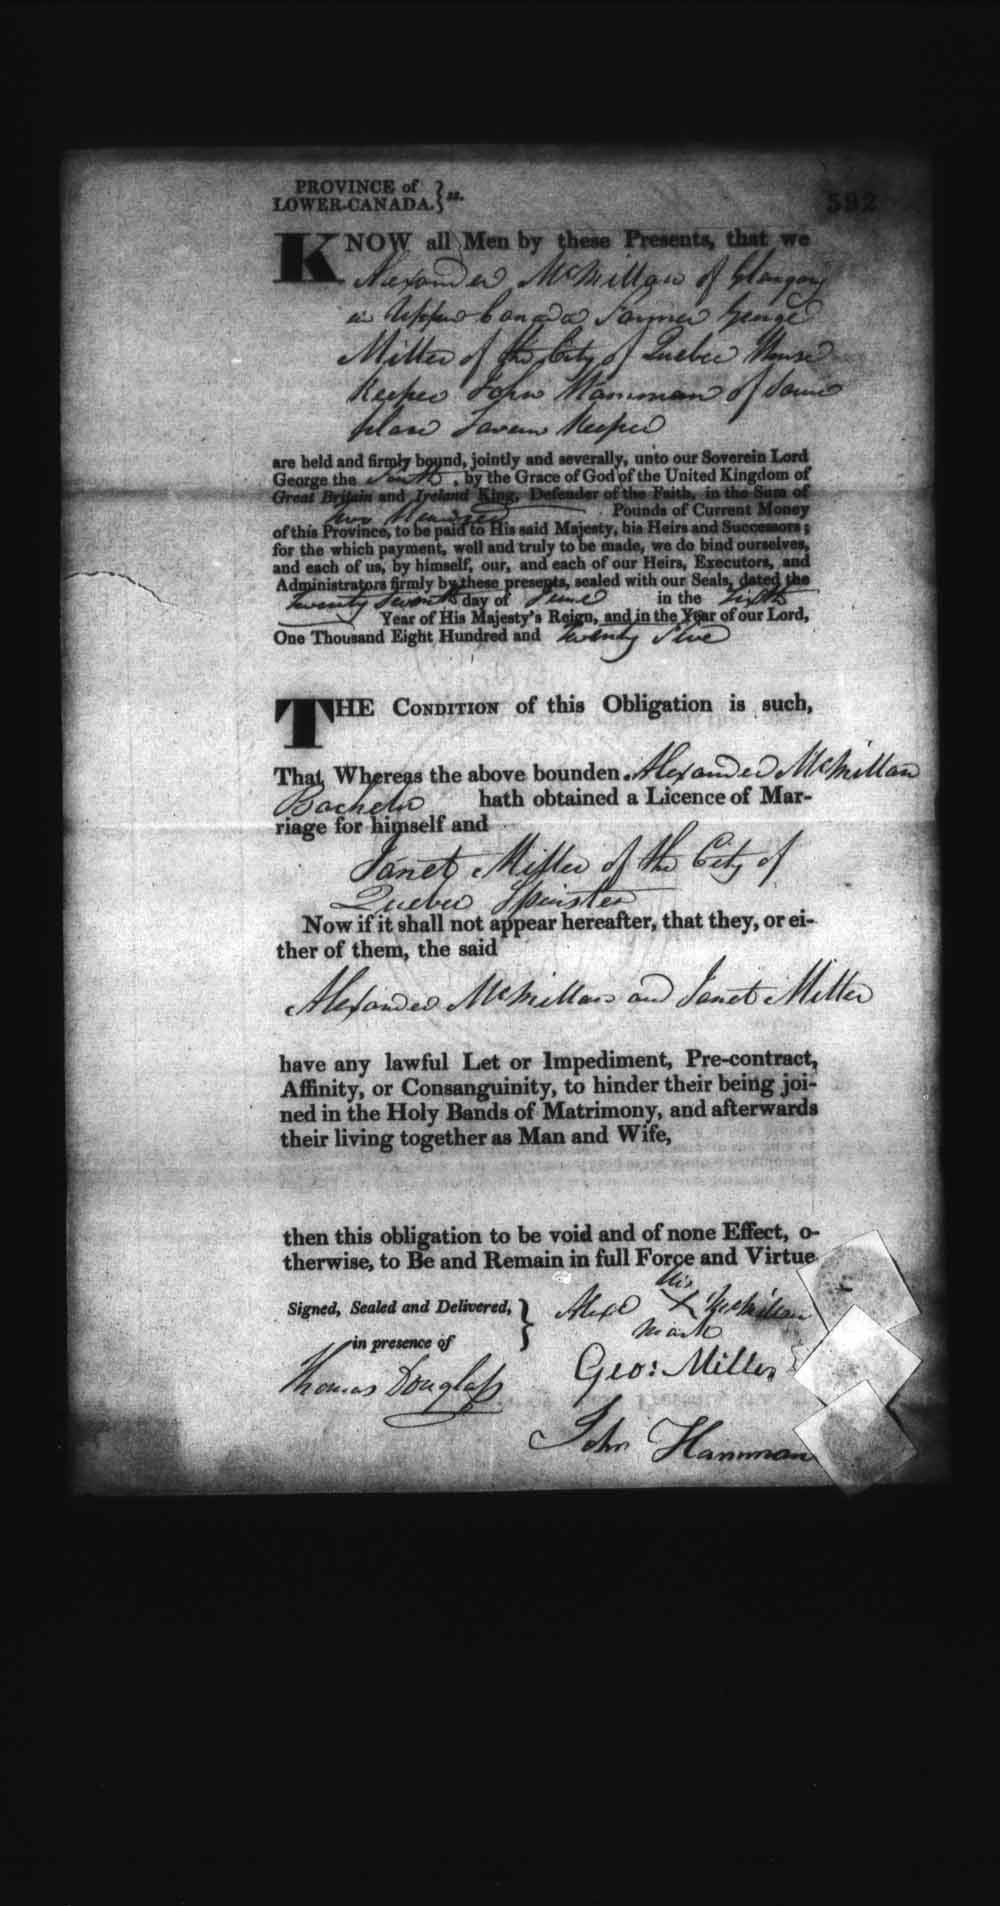 PROVINCE of
LOWER-CANADA. } ss.
592
KNOW all Men by these Presents, that we
Alexander McMillan of Glangary
in Upper Canada Farmer George
Miller of the City of Quebec House
Keeper John Hamman of same
place Tavern Keeper
are held and firmly bound, jointly and severally, unto our Soverein Lord
George the Fourth, by the Grace of God of the United Kingdom of
Great Britain and Ireland King, Defender of the Faith, in the Sum of
Two Hundred Pounds of Current Money
of this Province, to be paid to His said Majesty, his Heirs and Successors;
for the which payment, well and truly to be made, we do bind ourselves,
and each of us, by himself, our, and each of our Heirs, Executors, and
Administrators firmly by these presents, sealed with our Seals, dated the
Twenty Seventh day of June in the Sixth
Year of His Majesty's Reign, and in the Year of our Lord,
One Thousand Eight Hundred and Twenty Five
THE CONDITION of this Obligation is such,
That Whereas the above bounden Alexander McMillan
Bachelor hath obtained a Licence of Mar-
riage for himself and
Janet Miller of the City of
Quebec Spinster
Now if it shall not appear hereafter, that they, or ei-
ther of them, the said
Alexander McMillan and Janet Miller
have any lawful Let or Impediment, Pre-contract,
Affinity, or Consanguinity, to hinder their being joi-
ned in the Holy Bands of Matrimony, and afterwards
their living together as Man and Wife,
then this obligation to be void and of none Effect, o-
therwise, to Be and Remain in full Force and Virtue
Signed, Sealed and Delivered, }
in presence of
Thomas Douglass
his
Alexr X McMillan
mark
Geo: Miller
John Hamman